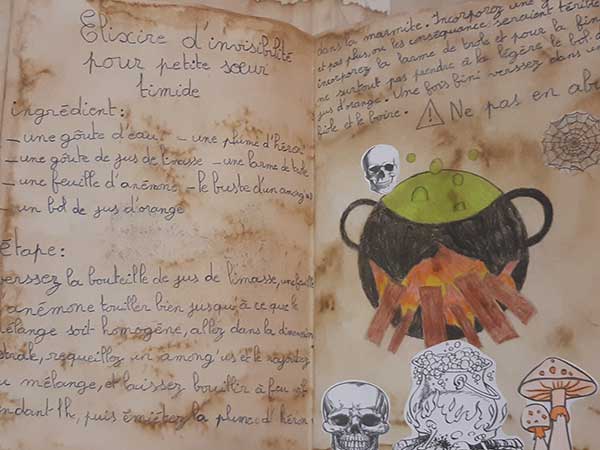 Elixire d'invisiblité
pour petite sœur
timide
ingrédient:
_ une goûte d'eau _ une plûme d'héron
_ une goûte de jus de limasse _ une larme de trole
_ une feuille d'anémone _ le buste d'un among us
_ un bol de jus d'orange
étape:
verssez la bouteille de jus de limasse, une feuille
anémone touiller bien jusqu'à ce que le
mélange soit homogène, allez dans la dimension
astrale, requeillez un among'us et le rajoutez
au mélange, et laissez bouillir à feu
pendant 1h, puis émiétez la plume d'héron
dans la marmite. Incorporez une
et pas plus, ou les conséquance seraient térible
incorporez la larme de trole et pour la fin
ne surtout pas prendre à la légère le bol de
jus d'orange. Une fois fini verssez dans un
et le boire. ⚠ Ne pas en abu